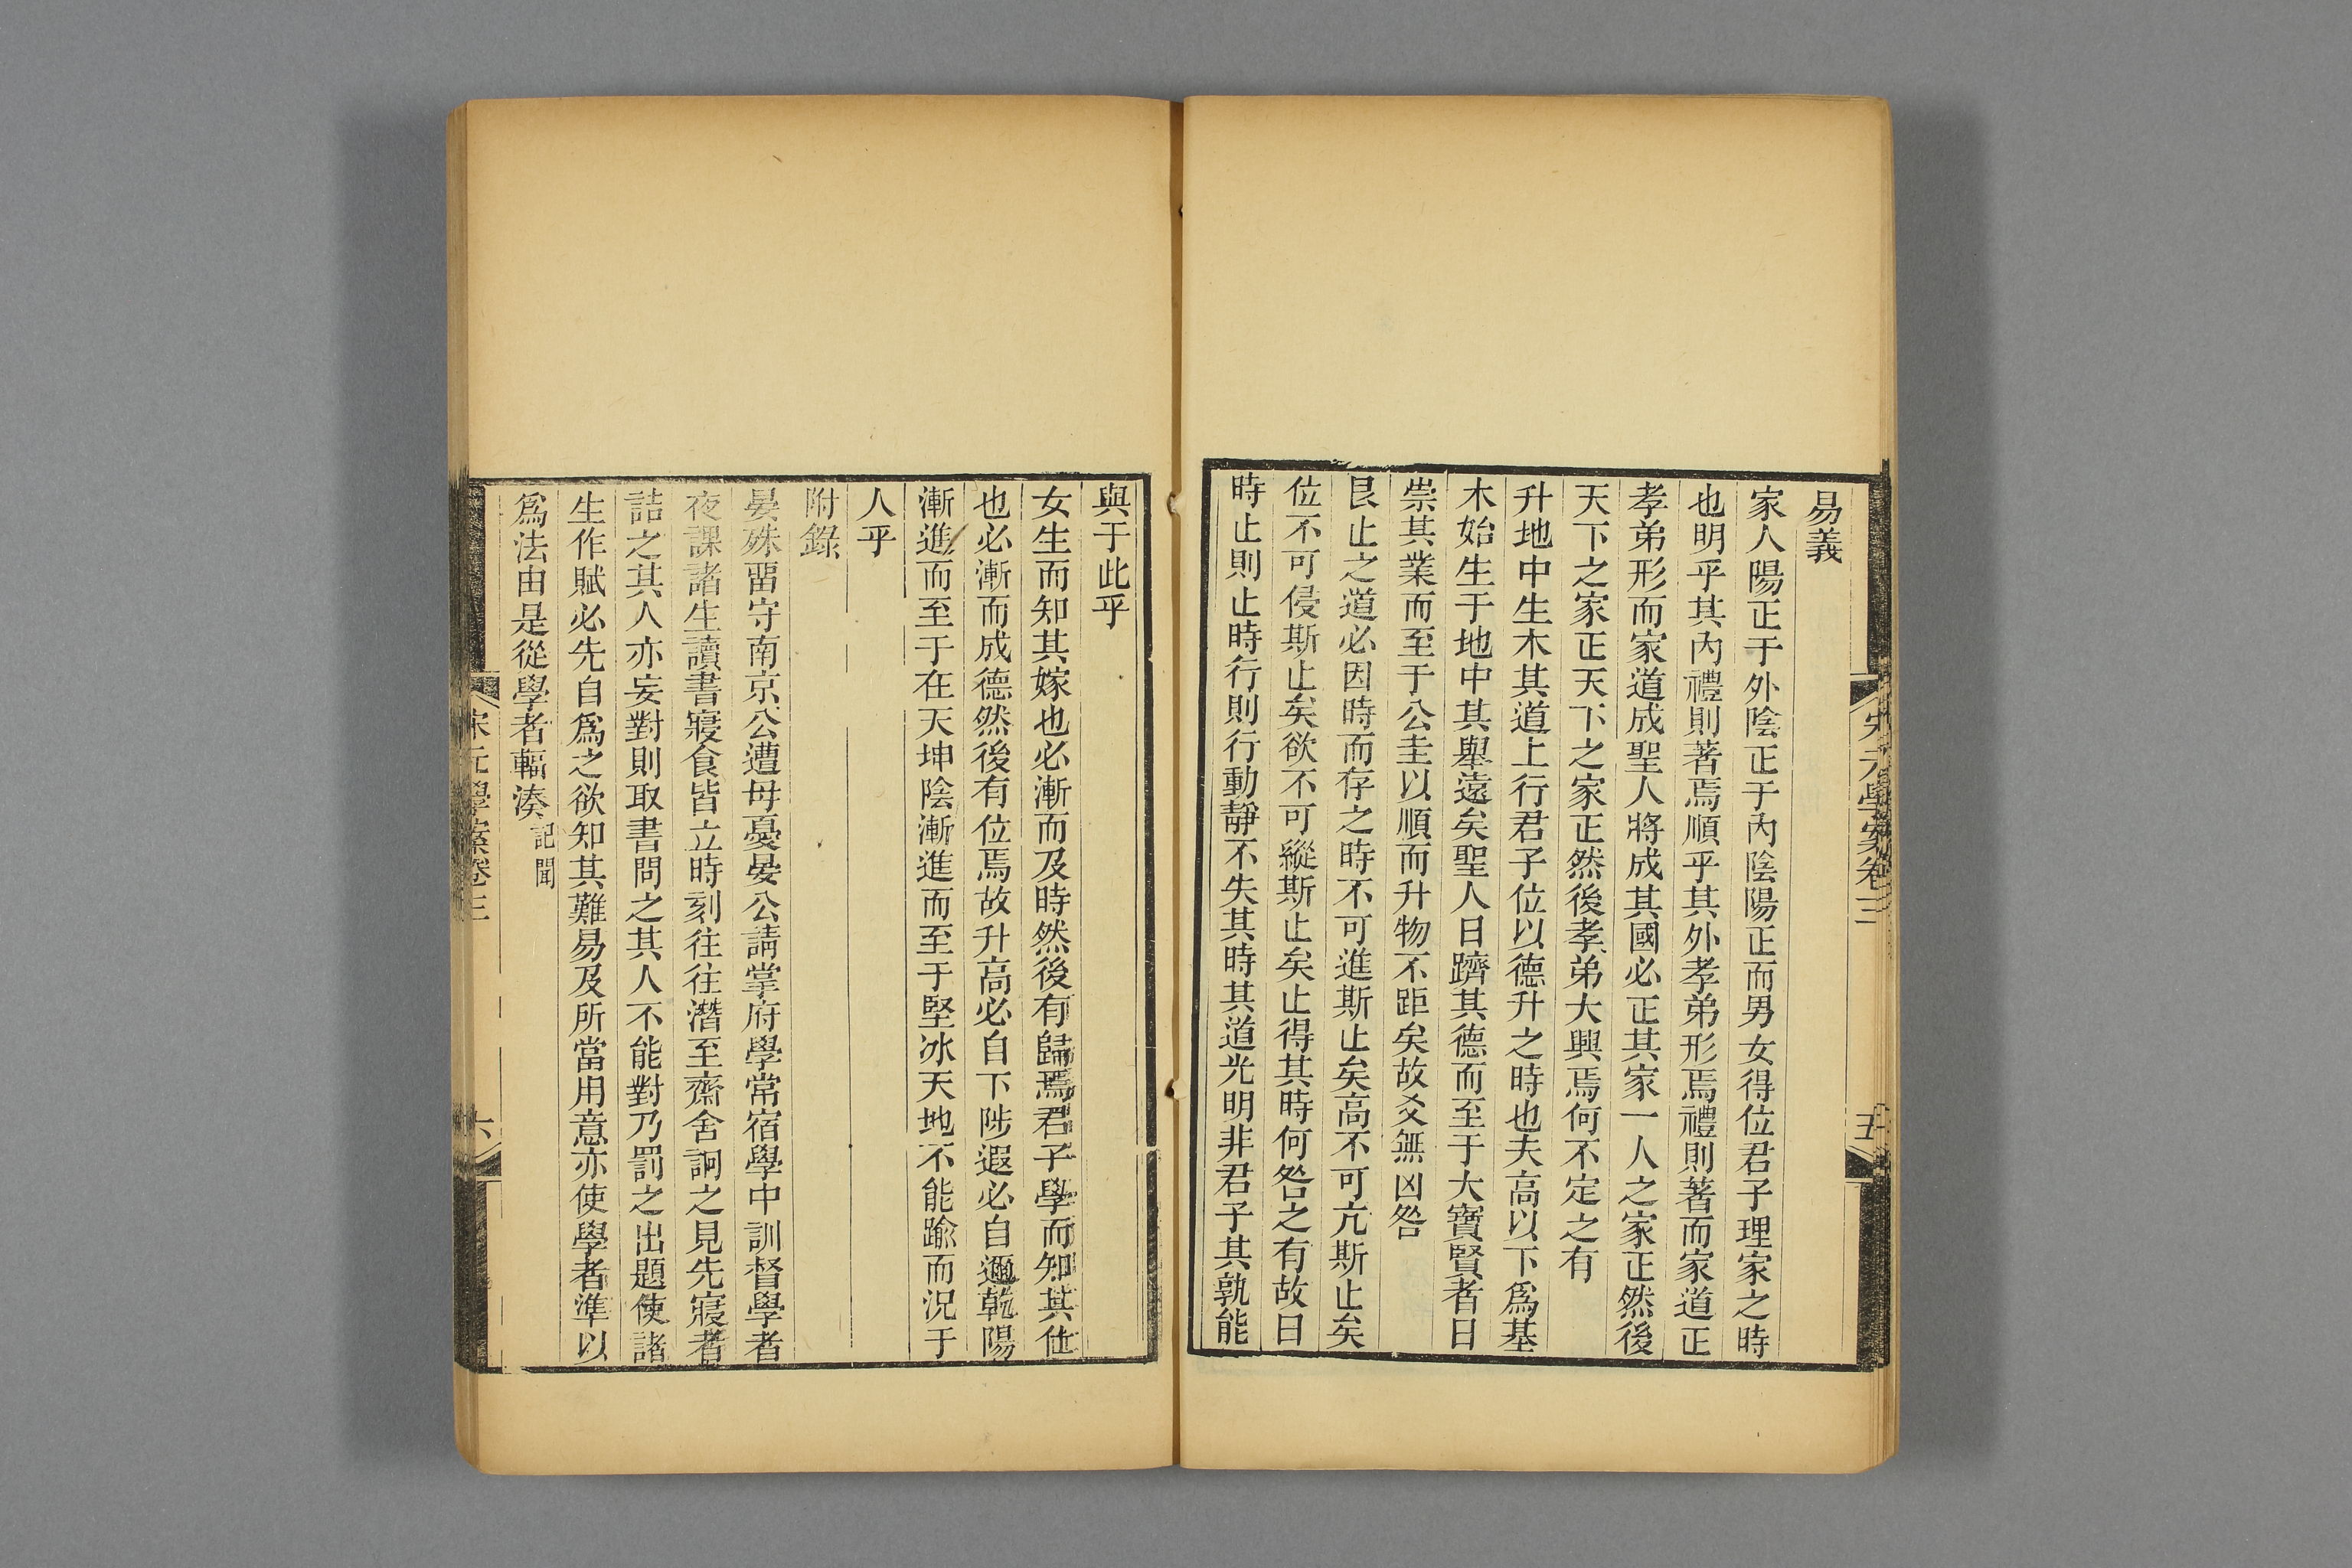 宋元學案卷三
五
易義
家人陽正于外陰正于內陰陽正而男女得位君子理家之時
也明乎其內禮則著焉順乎其外孝弟形焉禮則著而家道正
孝弟形而家道成聖人將成其國必正其家一人之家正然後
天下之家正天下之家正然後孝弟大興焉何不定之有
升地中生木其道上行君子位以德升之時也夫高以下爲基
木始生于地中其舉遠矣聖人日躋其德而至于大寶賢者日
崇其業而至于公圭以順而升物不距矣故爻無凶咎
艮止之道必因時而存之時不可進斯止矣高不可亢斯止矣
位不可侵斯止矣欲不可縱斯止矣止得其時何咎之有故曰
時止則止時行則行動靜不失其時其道光明非君子其孰能
與于此乎
女生而知其嫁也必漸而及時然後有歸焉君子學而知其仕
也必漸而成德然後有位焉故升高必自下陟遐必自邇乾陽
漸進而至于在天坤陰漸進而至于堅冰天地不能踰而況于
人乎
附錄
晏殊畱守南京公遭母憂晏公請掌府學常宿學中訓督學者
夜課諸生讀書寢食皆立時刻往往潛至齋舍詗之見先寢者
詰之其人亦妄對則取書問之其人不能對乃罰之出題使諸
生作賦必先自爲之欲知其難易及所當用意亦使學者準以
爲法由是從學者輻湊記聞
宋元學案卷三
六